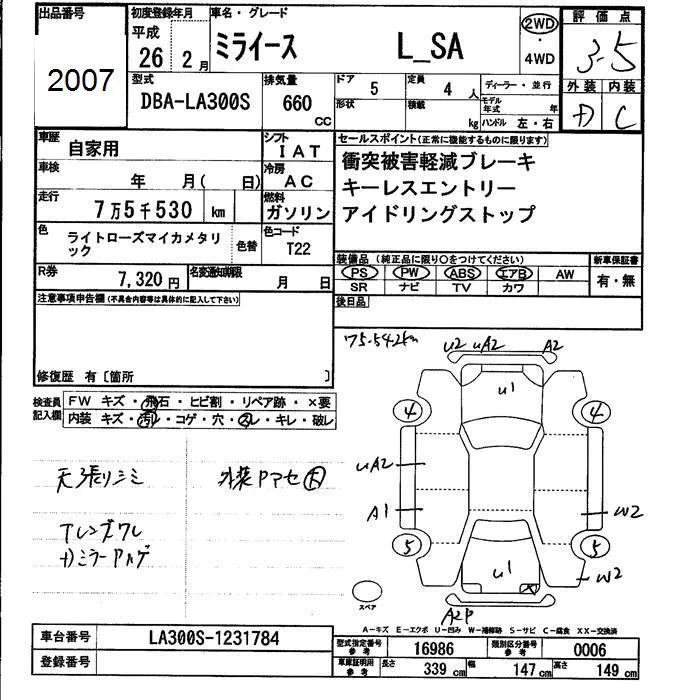 出品番号 初度登録年月 車名・グレード 評価点
2007 平成 26 年 2 月 ミライース L_SA 2WD・4WD 3-5
型式 排気量 ドア 5 定員 4 人 ディーラー・並行 外装 内装
DBA-LA300S 660 CC 形状 積載 kg モデル年式 年 ハンドル 左・右 D C
車歴 自家用 シフト IAT セールスポイント(正常に機能するものに限ります)
車検 年 月( 日) 冷房 AC 衝突被害軽減ブレーキ
走行 7万5千530 km 燃料 ガソリン キーレスエントリー
アイドリングストップ
色 ライトローズマイカメタリック 色替 色コード T22
装備品(純正品に限り○をつけてください) 新車保証書
R券 7,320円 名変通知期限 月 日 PS PW ABS エアB AW 有・無
SR ナビ TV カワ
注意事項申告欄(不具合内容等は具体的に記入して下さい) 後日品
'75.542km
修復歴 有〔箇所 〕
検査員記入欄 FW キズ・飛石・ヒビ割・リペア跡・×要
内装 キズ・汚レ・コゲ・穴・スレ・キレ・破レ
U2 UA2 A2
U1
4 4
天張リシミ 外装PマセD
UA2
A1 W2
5 5
U1 W2
スペア A2P
A-キズ E-エクボ U-凹み W-補修跡 S-サビ C-腐食 XX-交換済
車台番号 LA300S-1231784 型式指定番号 参考 16986 類別区分番号 参考 0006
登録番号 車庫証明用 参考 長さ 339 cm 幅 147 cm 高さ 149 cm